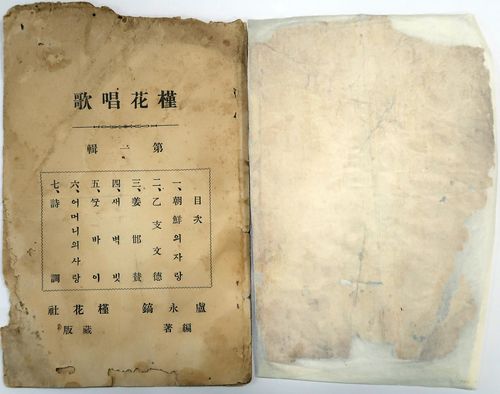 槿花唱歌
第一輯
目次
一、朝鮮의자랑
二、乙支文德
三、姜邯贊
四、새벽빗
五、쑷바이
六、어머니의사랑
七、詩調
盧永鎬編著
槿花社藏版